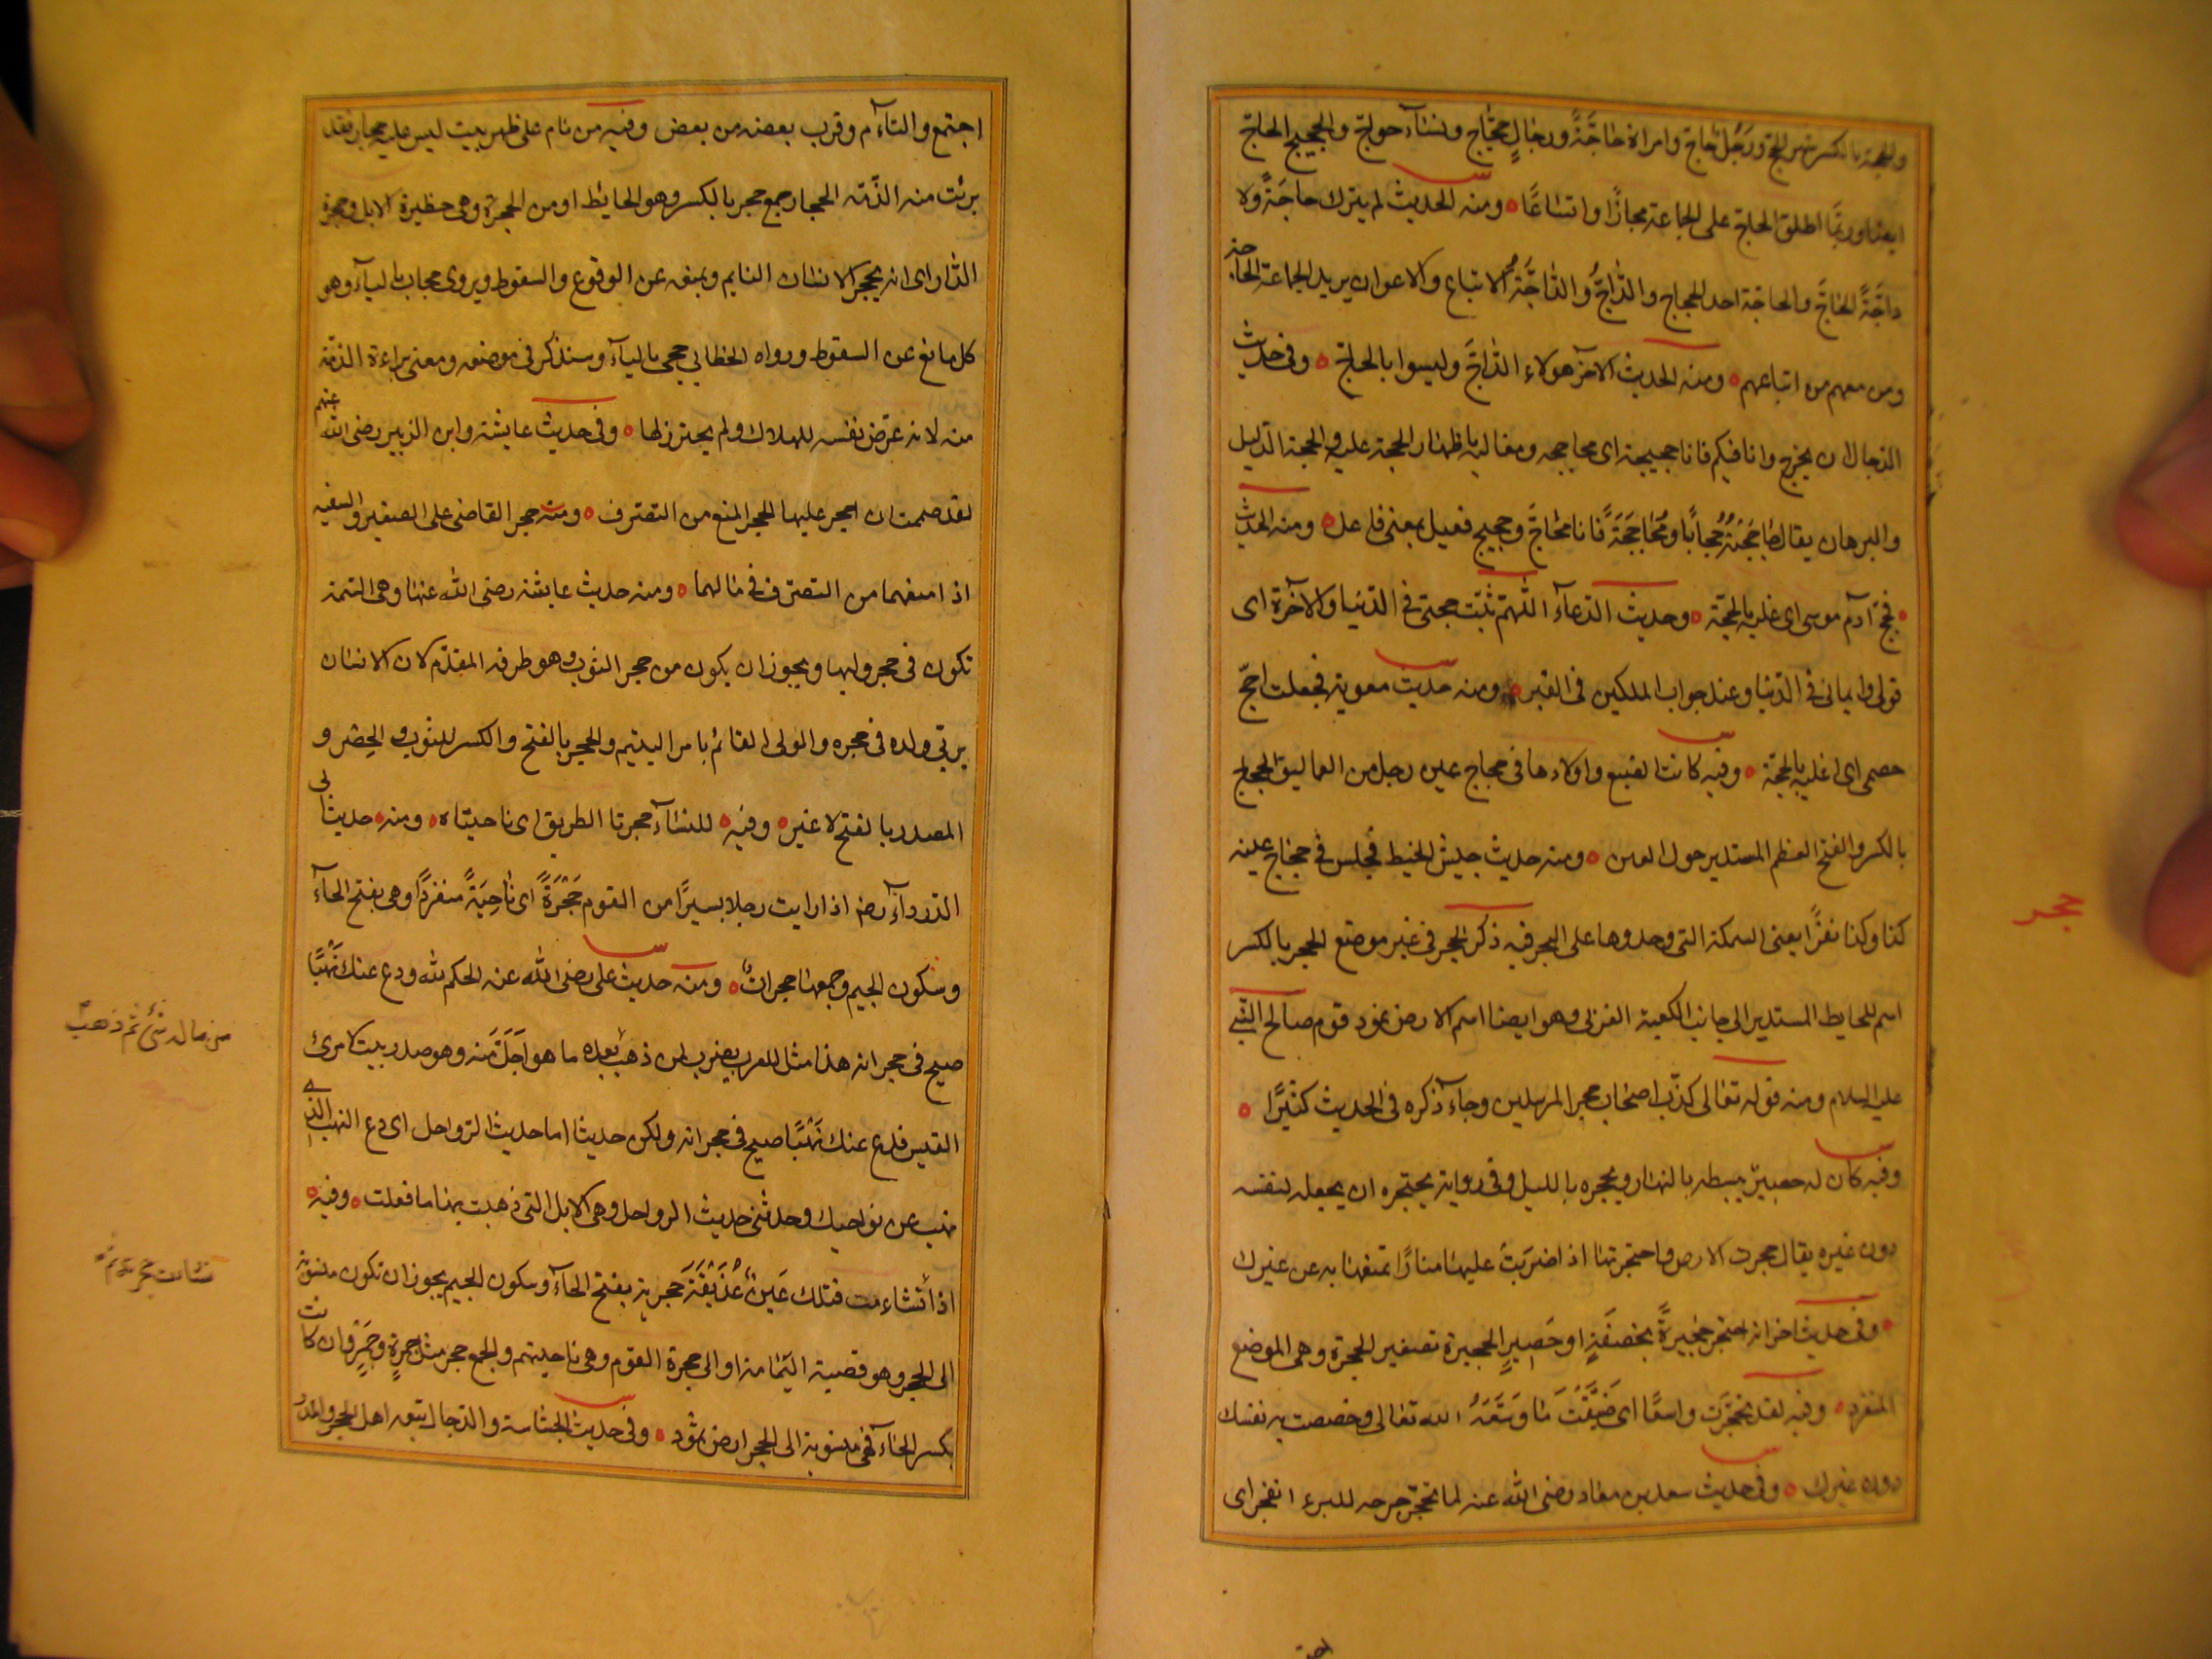 والحجة بالكسر شهر الحج ورَجُل حاج وامراة حاجَّةٌ ورجالٍ حجّاج ونساء حواج والحجيج الحاج
ايضا وربمَّا اطلق الحاج على الجماعة مجازًا واتساعًا ومنه الحديث لم يترك حاجَةً ولا
داجَّةً الحاجَّ والحاجة احد الحجاج والدَّاجُّ والدَّاجَّةُ الاتباع والاعوان يريد الجماعة الحاجة
ومن معهم من اتباعهم ومنه الحديث الاخر هولاء الدَّاجَّ وليسوا بالحاج وفى حديث
الدجال ان يخرج وانا فيكم فانا حجيجه اى محاججه ومغالبه باظهار الحجة عليه والحجة الدليل
والبرهان يقال حَاجَجْتهُ حُجاجًا ومُحَاجَجَةً فانا محَاجَّ وحجيج فعيل بمعنى فاعل ومنه الحديث
فحجّ آدم موسى اى غلبه بالحجّة وحديث الدعاء اللهم ثبّت حجتى فى الدّنيا والآخرة اى
قولى وايمانى فى الدّنيا وعند جواب الملكين فى القبر ومنه حديث معوية فجعلت احجّ
خصمى اى اغلبه بالحجّة وفيه كانت الضبع واولادها فى حجاج عين رجل من العماليق الحجاج
بالكسر والفتح العظم المستدير حول العين ومنه حديث جيش الخبط فجلس فى حجاج عينه
كذا وكذا نفرًا يعنى السمكة التى وجدوها على البحر فيه ذكر الحجر فى غير موضع الحجر بالكسر
اسم للحايط المستدير الى جانب الكعبة الغربى وهو ايضا اسم الارض ثمود قوم صالح النّبى
عليه السلام ومنه قوله تعالى كذّب اصحاب حجر المرسلين وجاء ذكره فى الحديث كثيرًا
وفيه كان له حصيرٌ يبسطه بالنهار ويحجره بالليل وفى رواية يحتجره ان يجعله لنفسه
دون غيره يقال حجرت الارض واحتجرتها اذا ضربت عليها منارًا تمنعها به عن غيرك
وفى حديث اخر انه احتجر حُجَيرةً بخَصَفَةٍ او حَصِيرٍ الحجيرة تصغير الحجرة وهى الموضع
المنفرد وفيه لقد تحجَّرت واسعًا اى ضَيَّقْتَ مَا وَسَّعَهُ الله تعالى وخصصت به نفسك
دون غيرك وفى حديث سعد بن معاذ رضى الله عنه لما تحجّر جرحه للبرء انفجر اى
حجر
اجتمع والتاءم وقرب بعضه من بعض وفيه من نام على ظهر بيت ليس عليه حجار فقد
برئت منه الذّمّة الحجار جمع حجر بالكسر وهو الحايط او من الحجرة وهى حظيرة الابل وحجرة
الدّار اى انه يحجر الانسان النايم ويمنعه عن الوقوع والسقوط ويروى حجاب بالباء وهو
كل مانع عن السقوط ورواه الخطابى حجى بالياء وسنذكر فى موضعه ومعنى براءة الذمّة
منه لانه عرّض نفسه للهلاك ولم يحترز لها وفى حديث عايشة وابن الزبير رضى الله عنهم
لقد هممت ان احجر عليها الحجر المنع من التصرف ومنه حجر القاضى على الصغير والسفيه
اذا منعهما من التصرف فى مالهما ومنه حديث عايشة رضى الله عنها وهى اليتيمة
تكون فى حجر وليها ويجوز ان يكون من حجر الثوب وهو طرفه المقدّم لان الانسان
يربّي ولده فى حجره والولى القائم بامر اليتيم والحجر بالفتح والكسر للثوب والحِضن و
المصدر بالفتح لا غير وفيه للنساء حجرتا الطريق اى ناحيتاه ومنه حديث ابى
الدرداء رضه اذا رايت رجلا يسيرًا من القوم حَجْرَةً اى نَاحِيَةً منفردًا وهى بفتح الحاء
وسكون الجيم وجمعها حجرات ومنه حديث على رضى الله عنه الحكم لله ودع عنك نَهْبًا
صيح فى حجراته هذا مثل للعرب يضرب لمن ذهب بعده ما هو اَجَلَّ منه وهو صدر بيت لامرئ
القيس فدع عنك نَهْبًا صيح فى حجراته ولكن حديثا اما حديث الرّواحل اى دع النهب الذى
نهب من نواحيك وحدثنى حديث الرواحل وهى الابل التى ذهبت بهاما فعلت وفيه
اذا نشاءمت فتلك عَيْنٌ غُدَيْقَةَ حجرية بفتح الحاء وسكون الجيم يجوز ان تكون منسوبة
الى الحجر وهو قصبة اليمامة او الى حجرة القوم وهى ناحيتهم والجمع حجر مثل جمرةٍ وجَمْرٍ وان كانت
بكسر الحاء فهى منسوبة الى الحجر ارض ثمود وفى حديث الجسّاسة والدجال يتبعه اهل الحجر والمدر
من ماله شئ ثم ذهب